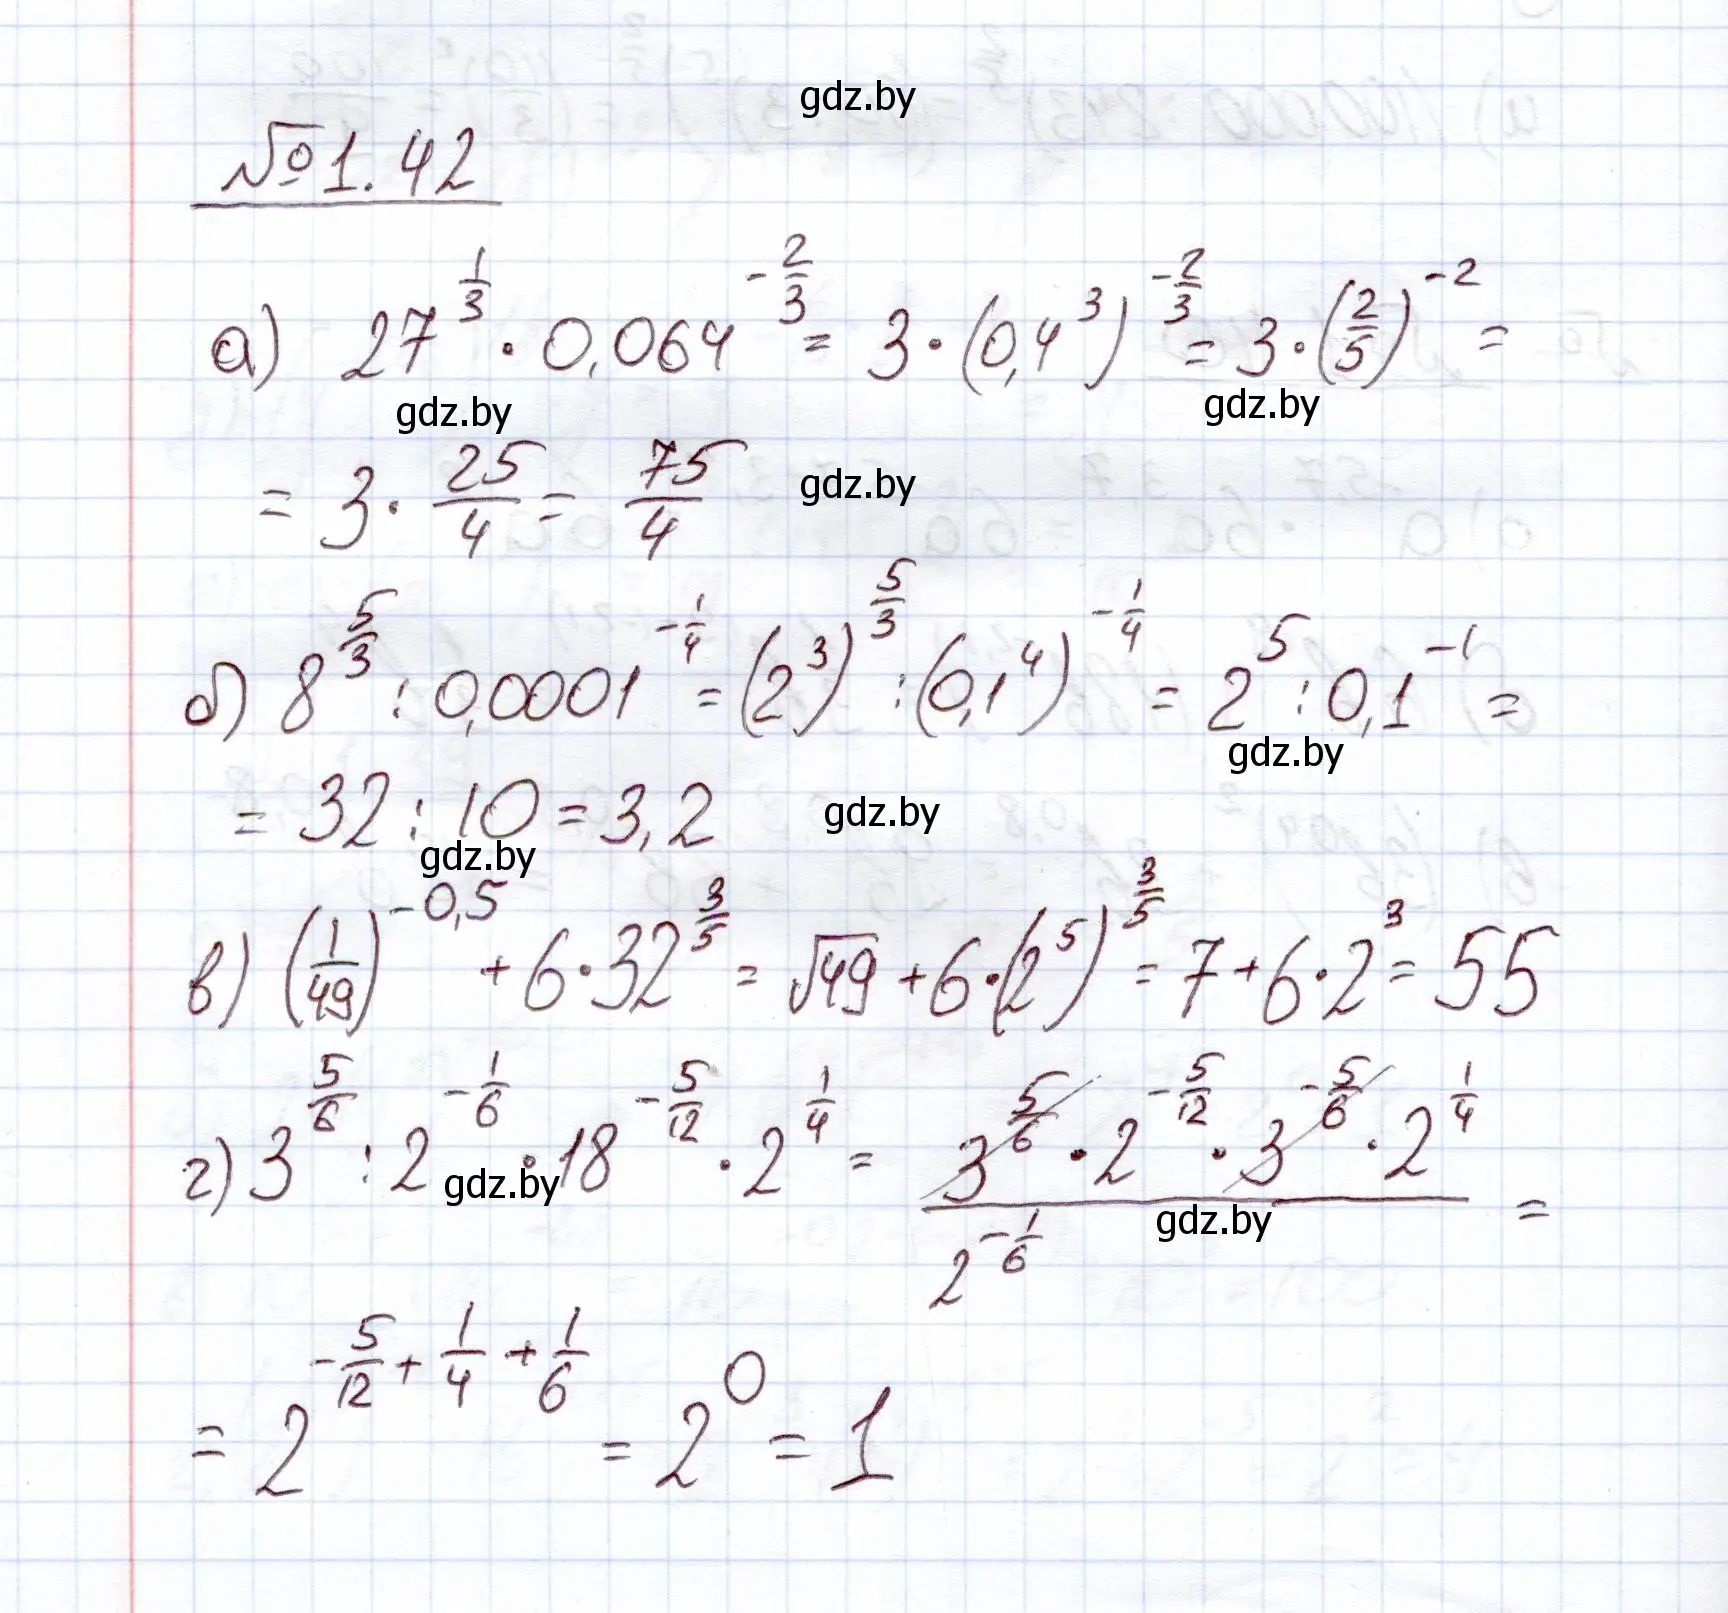 gdz.by
№1.42
а) 27^(1/3) · 0,064^(-2/3) = 3 · (0,4^3)^(-2/3) = 3 · (2/5)^(-2) =
gdz.by gdz.by
= 3 · 25/4 = 75/4 gdz.by
б) 8^(5/3) : 0,0001^(-1/4) = (2^3)^(5/3) : (0,1^4)^(-1/4) = 2^5 : 0,1^(-1) =
gdz.by
= 32 : 10 = 3,2 gdz.by
gdz.by
в) (1/49)^(-0,5) + 6 · 32^(3/5) = √49 + 6 · (2^5)^(3/5) = 7 + 6 · 2^3 = 55
г) 3^(5/6) : 2^(-1/6) · 18^(-5/12) · 2^(1/4) = (3^(5/6) · 2^(-5/12) · 3^(-5/6) · 2^(1/4)) / 2^(-1/6) =
gdz.by gdz.by
= 2^(-5/12 + 1/4 + 1/6) = 2^0 = 1